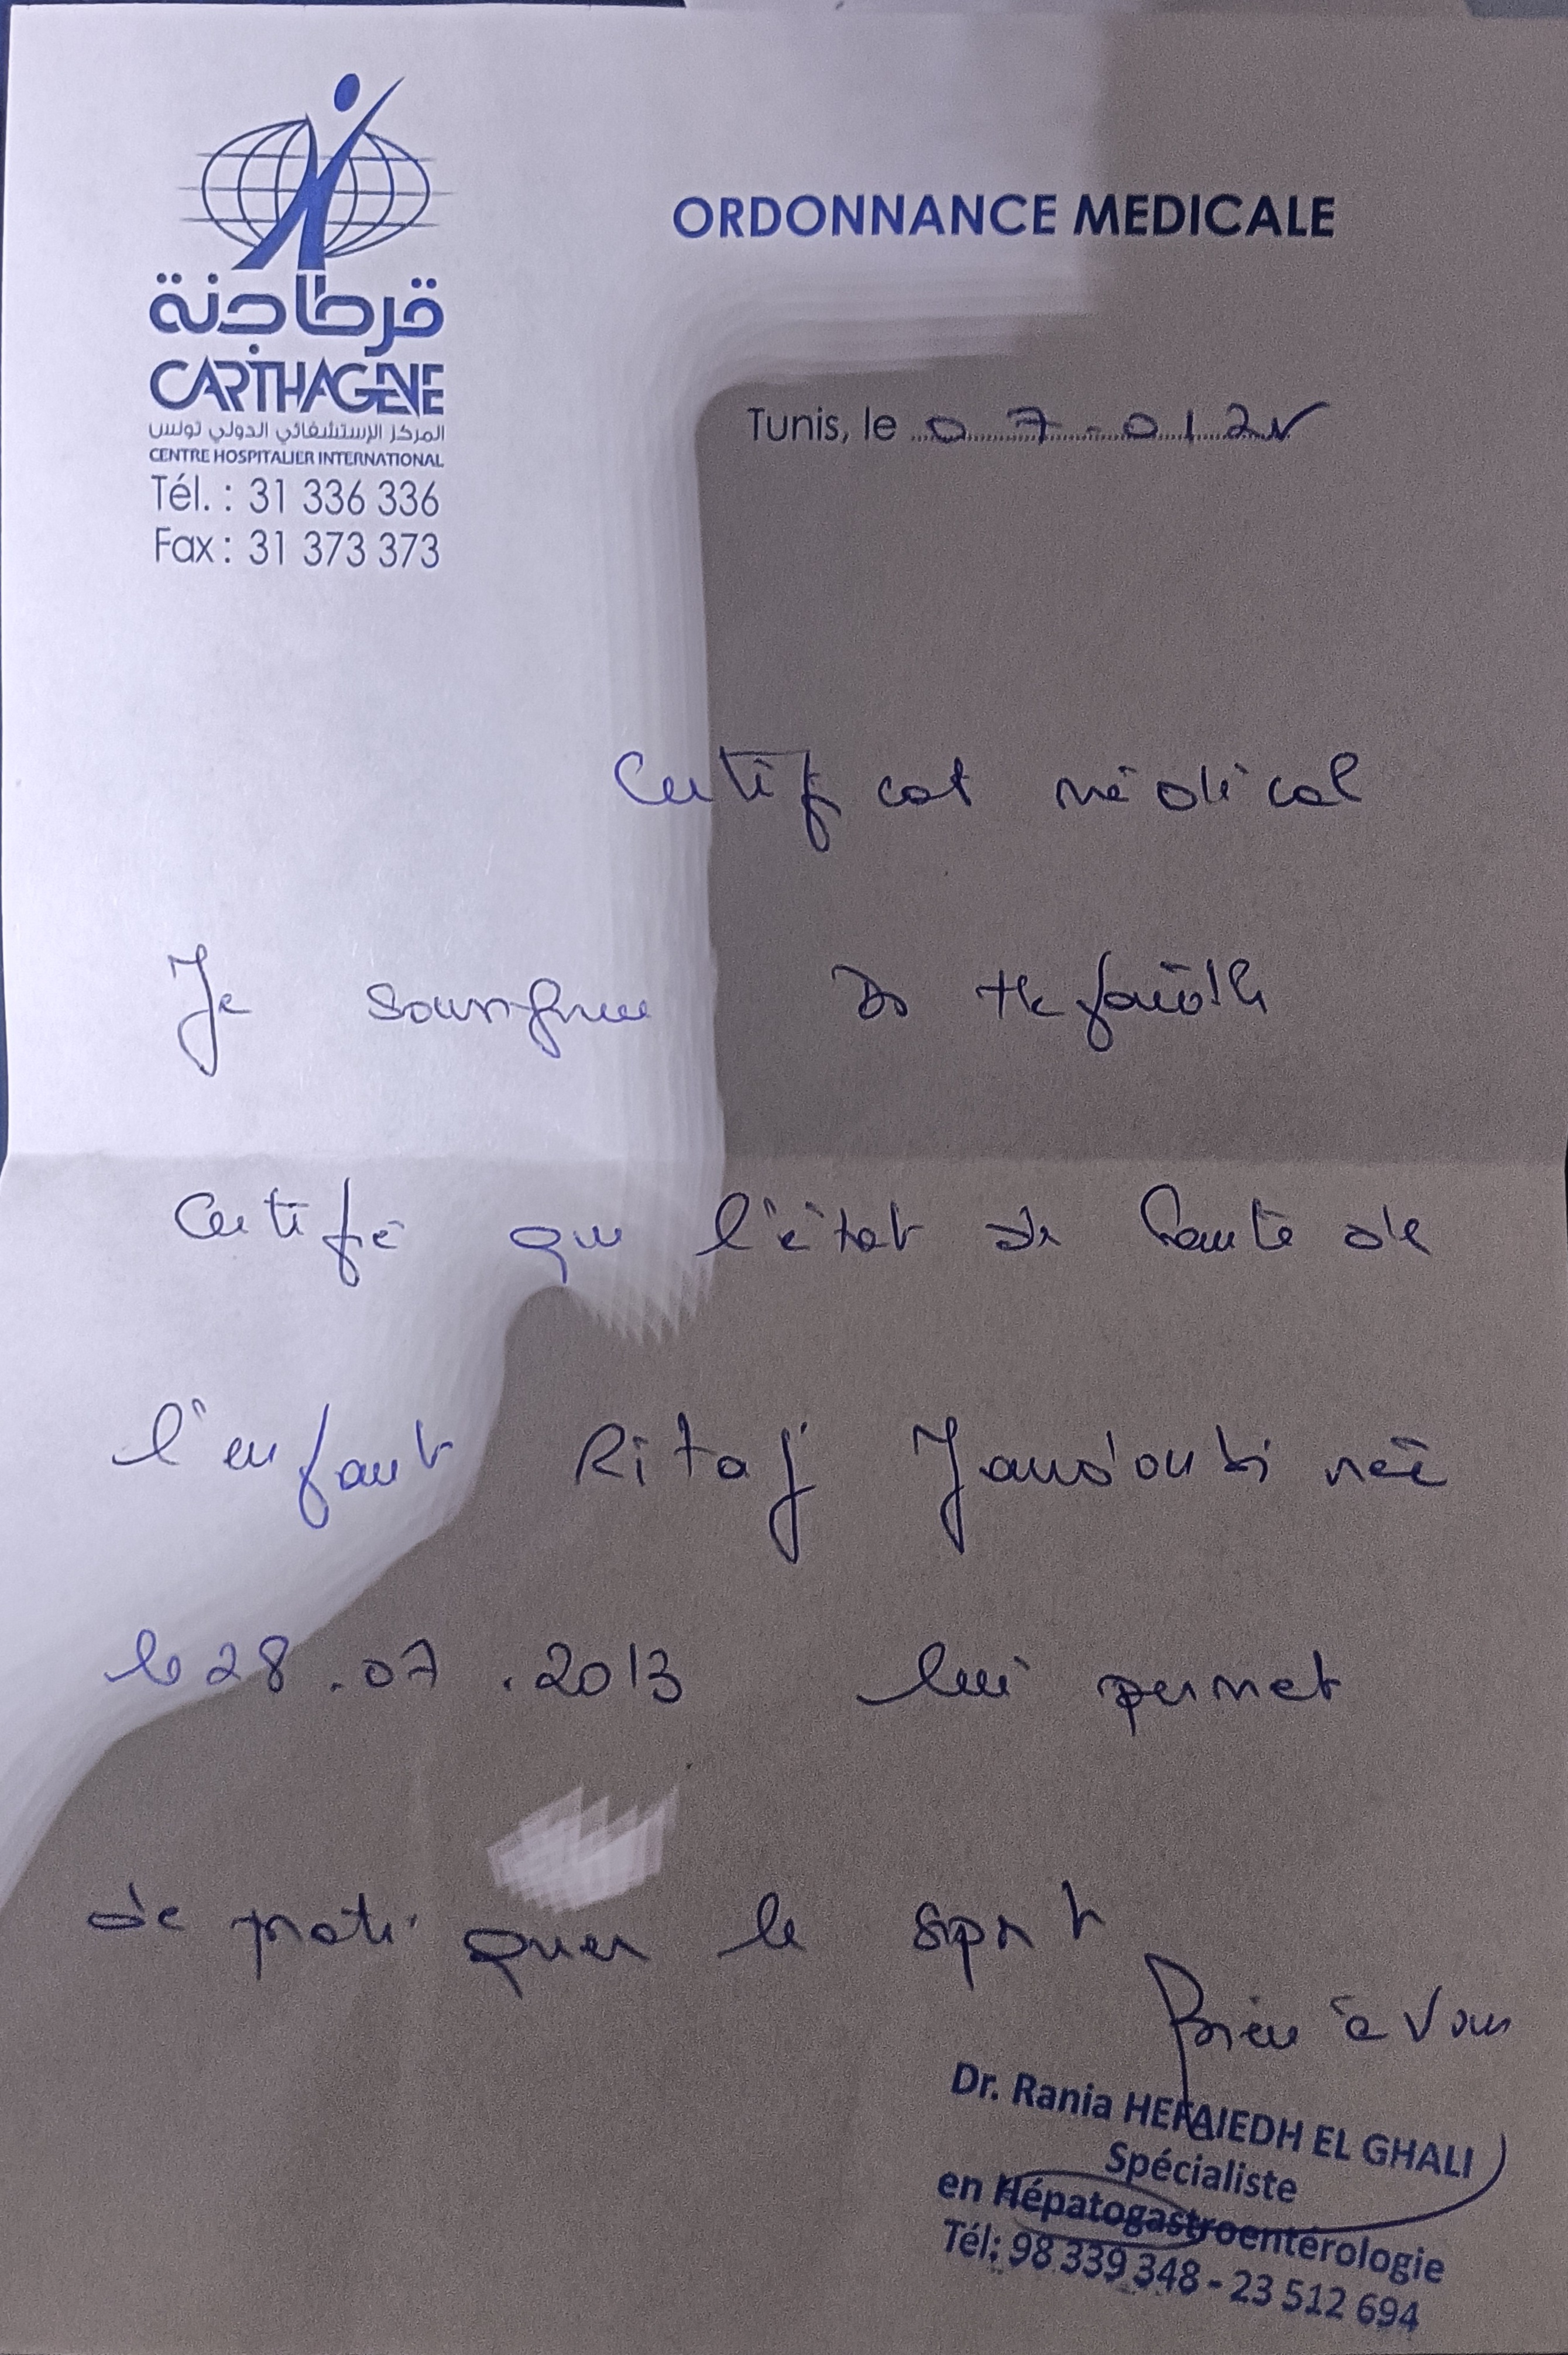 قرطاجنة
CARTHAGENE
المركز الإستشفائي الدولي تونس
CENTRE HOSPITALIER INTERNATIONAL
Tél. : 31 336 336
Fax : 31 373 373
ORDONNANCE MEDICALE
Tunis, le 07-01
Certificat médical
Je soussignée Dr Hefaiedh
Certifie que l'état de Santé de
l'enfant Ritaj Jandoubi née
le 28.07.2013 lui permet
de pratiquer le sport
à Vous
Dr. Rania HEFAIEDH EL GHALI
Spécialiste
en Hépatogastroentérologie
Tél: 98 339 348 - 23 512 694